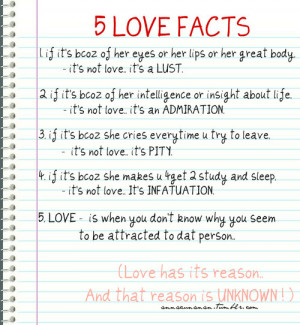 5 LOVE FACTS
1. if it's bcoz of her eyes or her lips or her great body.
- it's not love. it's a LUST.
2. if it's bcoz of her intelligence or insight about life.
- it's not love. it's an ADMIRATION.
3. if it's bcoz she cries everytime u try to leave.
- it's not love. it's PITY.
4. if it's bcoz she makes u 4get 2 study and sleep.
- it's not love. It's INFATUATION.
5. LOVE - is when you don't know why you seem
to be attracted to dat person.
(Love has its reason..
And that reason is UNKNOWN!)